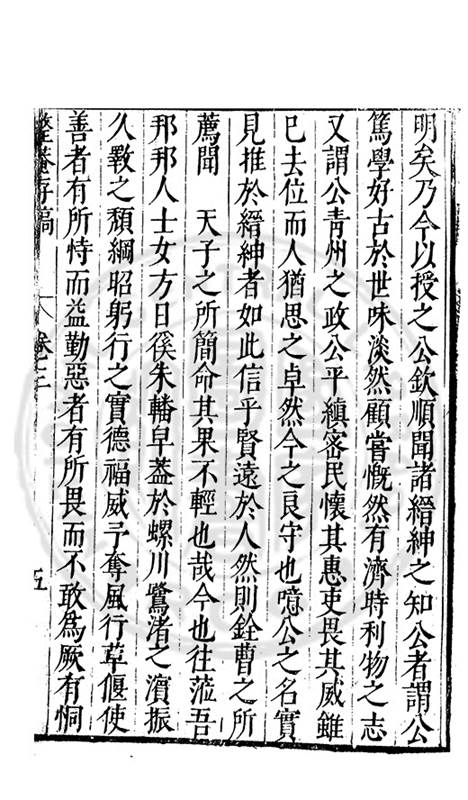 明矣乃今以授之公欽順聞諸縉紳之知公者謂公
篤學好古於世味淡然顧嘗慨然有濟時利物之志
又謂公青州之政公平縝密民懷其惠吏畏其威雖
已去位而人猶思之卓然今之良守也噫公之名實
見推於縉紳者如此信乎賢遠於人然則銓曹之所
薦聞　天子之所簡命其果不輕也哉今也往蒞吾
邦邦人士女方日徯朱轓皁蓋於螺川鷺渚之濱振
久斁之頹綱昭躬行之實德福威予奪風行草偃使
善者有所恃而益勤惡者有所畏而不敢爲厥有恫
整菴存稿　卷三　五